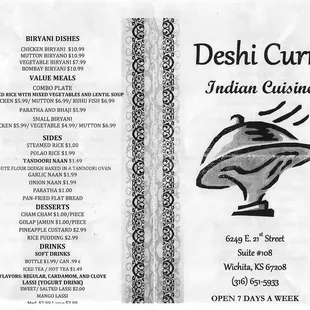 BIRYANI DISHES
CHICKEN BIRYANI $10.99
MUTTON BIRYANO $10.99
VEGETABLE BIRYANI $7.99
BOMBAY BIRYANI $10.99
VALUE MEALS
COMBO PLATE
ED RICE WITH MIXED VEGETABLES AND LENTIL SOUP
CKEN $5.99/ MUTTON $6.99/ RUHU FISH $6.99
PARATHA AND BHAJI $5.99
SMALL BIRYANI
CKEN $5.99/ VEGETABLE $4.99/ MUTTON $6.99
SIDES
STEAMED RICE $1.00
POLAO RICE $1.99
TANDOORI NAAN $1.49
HITE FLOUR DOUGH BAKED IN A TANDOORI OVEN
GARLIC NAAN $1.99
ONION NAAN $1.99
PARATHA $1.00
PAN-FRIED FLAT BREAD
DESSERTS
CHAM CHAM $1.00/PIECE
GOLAP JAMUN $1.00/PIECE
PINEAPPLE CUSTARD $2.99
RICE PUDDING $2.99
DRINKS
SOFT DRINKS
BOTTLE $1.99/ CAN .99 ¢
ICED TEA / HOT TEA $1.49
FLAVORS: REGULAR, CARDAMOM, AND CLOVE
LASSI (YOGURT DRINK)
SWEET/ SALTED LASSI $2.00
MANGO LASSI
Deshi Curr
Indian Cuisine
6249 E. 21st Street
Suite #108
Wichita, KS 67208
(316) 651-5933
OPEN 7 DAYS A WEEK